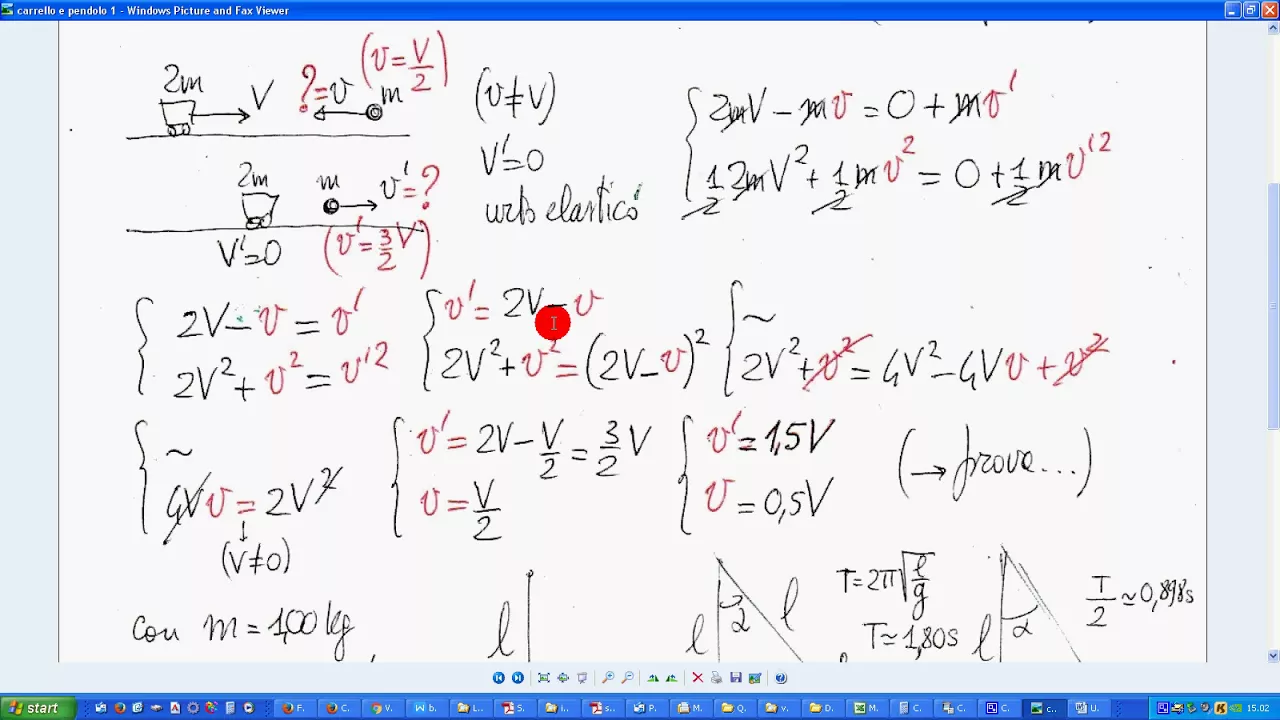 carrello e pendolo 1 - Windows Picture and Fax Viewer
2m
V
?=v
(v=V/2)
m
(v≠V)
V'=0
urto elastico
2mV - mv = 0 + mv'
1/2 2mV² + 1/2 mv² = 0 + 1/2 mv'²
2m
m
v'=?
V'=0
(v'=3/2 V)
2V - v = v'
2V² + v² = v'²
v' = 2V - v
2V² + v² = (2V - v)²
~
2V² + v² = 4V² - 4Vv + v²
~
4Vv = 2V²
(V≠0)
v' = 2V - V/2 = 3/2 V
v = V/2
v' = 1,5V
v = 0,5V
(→ prova...)
con m = 1,00 kg
l
l
2
l
T = 2π√(l/g)
T ≃ 1,80s
l
2
T/2 ≃ 0,898s
start
F.
C.
V.
b.
L.
S.
i.
s.
P.
M.
Q.
v.
D.
M.
C.
C.
C.
c..
U.
15.02